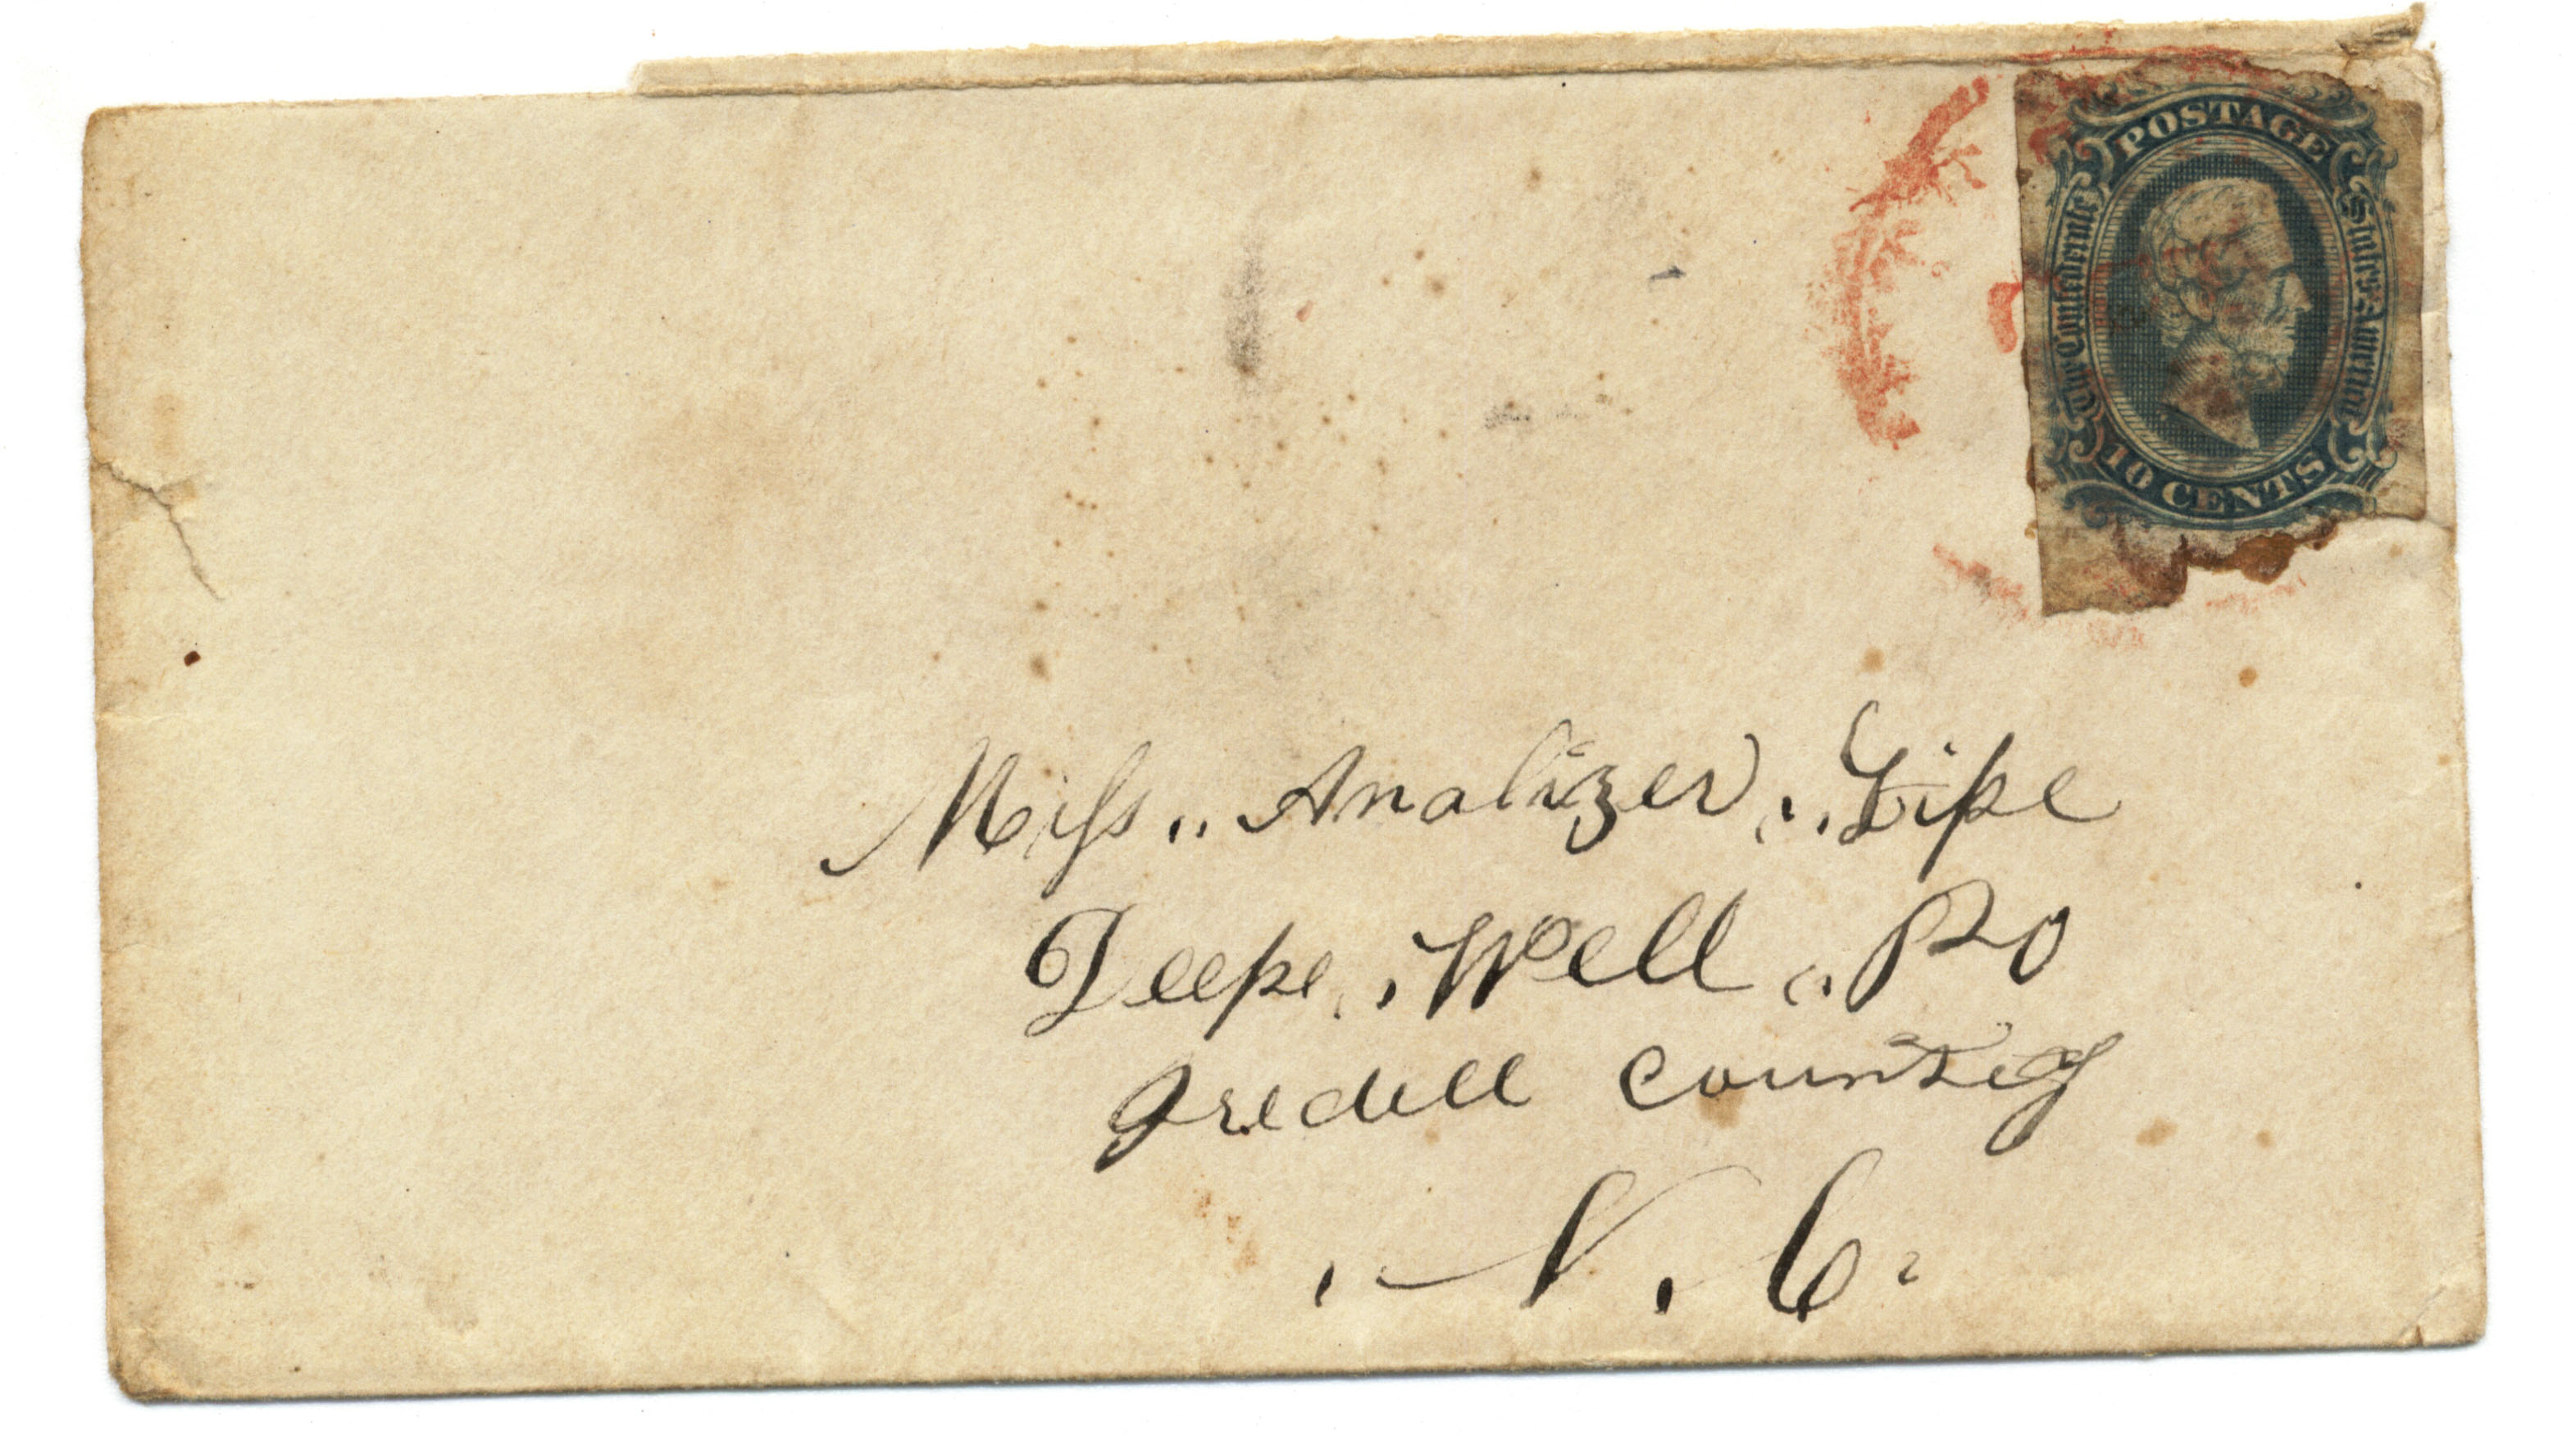 POSTAGE
The Confederate States America
10 CENTS
Miss,, Analizer,,, Gipe
Deepe,, Well,, PO
Iredell countey
, N, C,